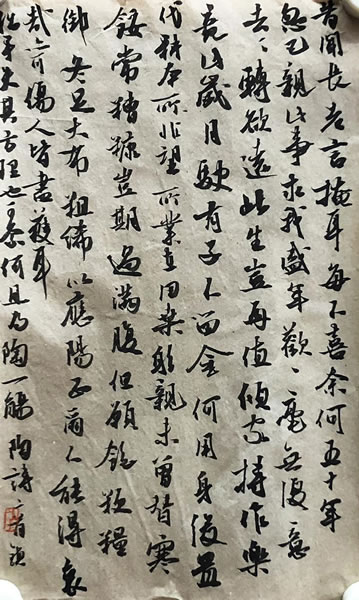 昔聞長老言掩耳每不喜奈何五十年
忽已親此事求我盛年歡一毫無復意
去々轉欲遠此生豈再值傾家持作樂
竟此歲月駛有子不留金何用身後置
代耕本非望所業在田桑躬親未曾替寒
餒常糟糠豈期過滿腹但願飽粳糧
御冬足大布粗絺以應陽正爾不能得哀
哉亦可傷人皆盡獲宜
拙生失其方理也可奈何且為陶一觴 陶詩